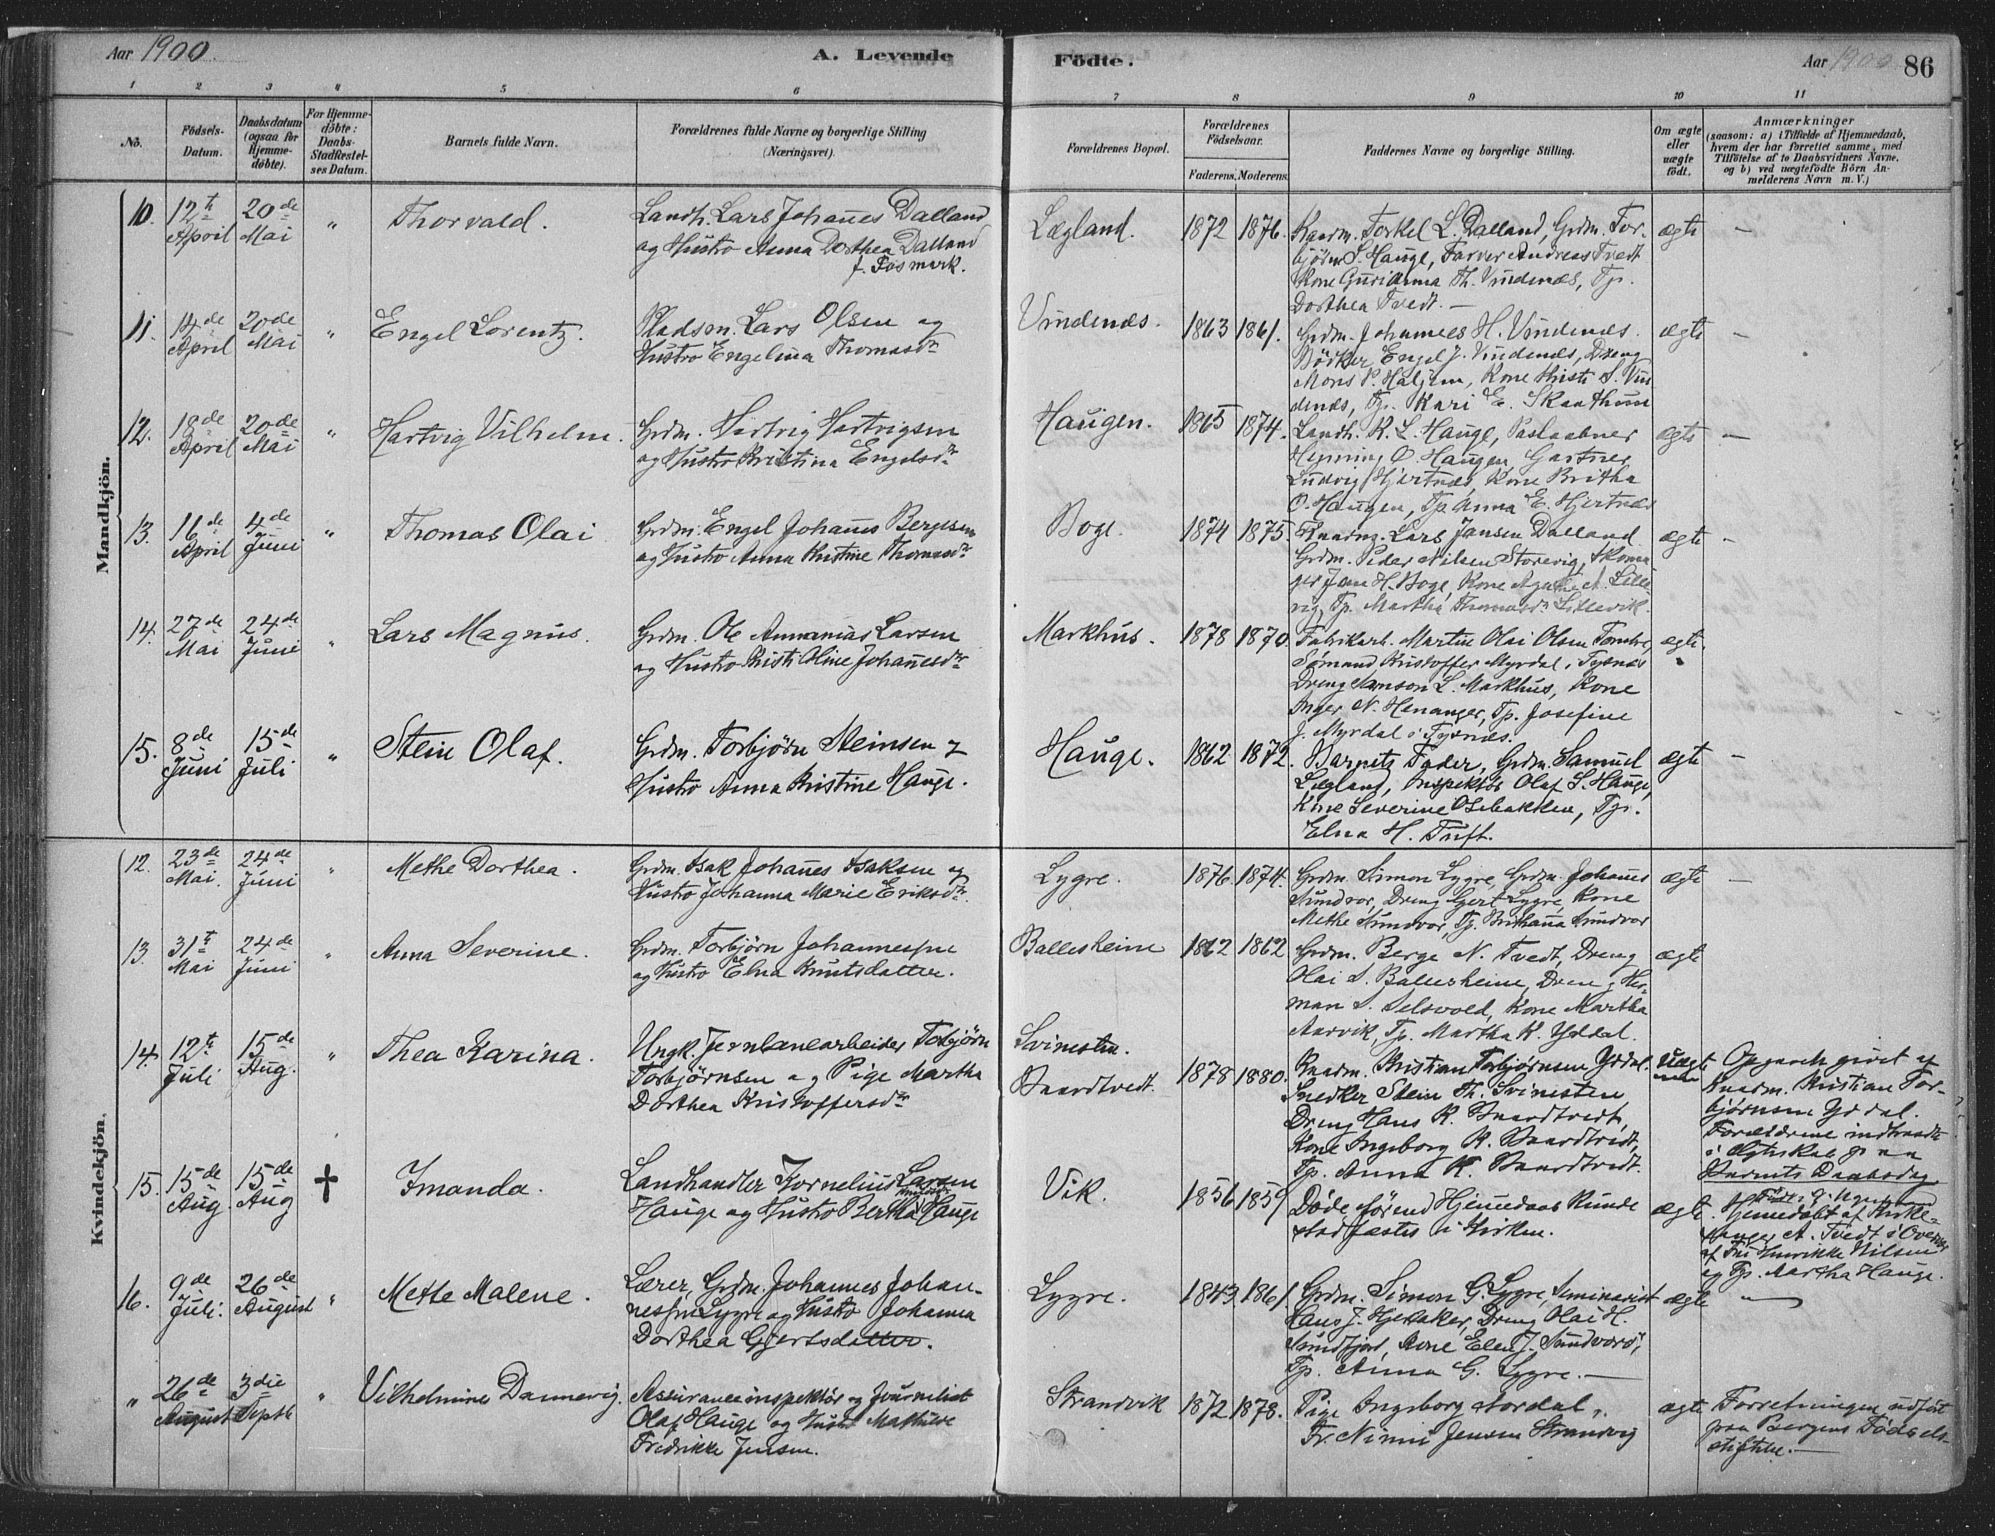 Aar 1900.
A. Levende
Födte.
Aar 1900
86
1 2 3 4 5 6 7 8 9 10 11
No.
Födsels-Datum.
Daabsdatum (ogsaa for Hjemme-döbte).
For Hjemme-döbte: Daabs-Stadfæstel-ses Datum.
Barnets fulde Navn.
Forældrenes fulde Navne og borgerlige Stilling (Næringsvei).
Forældrenes Bopæl.
Forældrenes Födselsaar.
Faderens. Moderens.
Faddernes Navne og borgerlige Stilling.
Om ægte eller uægte födt.
Anmærkninger
(saasom: a) i Tilfælde af Hjemmedaab,
hvem der har forrettet samme, med
Tilföielse af to Daabsvidners Navne,
og b) ved uægtefödte Börn An-
melderens Navn m. V.)
Mandkjön.
10. 12t April 20de Mai " Thorvald. Landh. Lars Johannes Dalland
og Hustro Anna Dorthea Dalland
f. Fosmark.
Lægland. 1872 1876. Kaarm. Torkel L. Dalland, Grdm. Tor-
bjørn S. Hauge, Farver Andreas Tvedt
Kone Gurianna Th. Vindenæs, Tp.
Dorthea Tvedt. —
ægte —
11. 14de April 20de Mai " Engel Lorentz. Pladsm. Lars Olsen og
Hustro Engelina Thomasdtr
Vindenæs. 1863 1861. Grdm. Johannes H. Vindenæs.
Bödker Engel J. Vindenæs, Dreng
Mons P. Haljem, Kone Kristi S. Vin
denæs, Tp. Kari E. Skaathun
ægte —
12. 18de April 20de Mai " Hartvig Vilhelm. Grdm. Hartvig Hartvigsen
og Hustro Kristina Engelsdtr
Haugen. 1865 1874. Landh. K. L. Hauge, Postaabner
Henning O. Haugen, Gartner
Ludvig Hjertnæs, Kone Britha
O. Haugen, Tp. Anna E. Hjertnæs
ægte —
13. 16de April 4de Juni " Thomas Olai Grdm. Engel Johannes Bergesen
og Hustro Anna Kristine Thomasdtr
Boge. 1874 1875. Lars Jansen Dalland.
Grdm. Peder Nilsen Storevig, Skoma
ger Jens H. Boge, Kone A. Lille-
vig, Tp. Martha Thomasdtr Lillevik.
ægte —
14. 27de Mai 24de Juni " Lars Magnus. Grdm. Ole Annanias Larsen
og Hustro Kristi Oline Johannesdtr
Markhus. 1878 1870. Fabrikarb. Martin Olai Olsen
Sømand Kristoffer Myrdal i Tysnæs
Dreng Samson L. Markhus, Kone
Inger N. Henanger, Tp. Josefine
J. Myrdal i Tysnæs.
ægte
15. 8de Juni 15de Juli " Stein Olaf. Grdm. Torbjørn Steinsen og
Hustro Anna Kristine Hauge.
Hauge. 1862 1872. Barnets Fader, Grdm. Samuel
Lægland, Inspektör Olaf S. Hauge,
Kone Severine Osebakken, Tp.
Elna H. Tuft.
ægte —
Kvindekjön.
12. 23de Mai. 24de Juni " Methe Dorthea. Grdm. Isak Johannes Isaksen og
Hustro Johanna Marie Eriksdtr.
Lygre. 1876 1874. Grdm. Simon Lygre, Grdm. Johannes
Sundvor, Dreng Gert Lygre, Kone
Methe Sundvor, Tp. Sundvor
ægte —
13. 31t Mai 24de Juni " Anna Severine. Grdm. Torbjørn Johannessen
og Hustro Elna Knutsdatter.
Ballesheim 1862 1862 Grdm. Berge N. Tvedt, Dreng
Olai S. Ballesheim, Dreng Her-
man S. Selsvold, Kone Martha
Aarvik, Tp. Martha K. Yddal.
ægte
14. 12t Juli 15de Aug. " Thea Karina. Ungk. Jernbanearbeider Torbjörn
Torbjørnsen og Pige Martha
Dorthea Kristoffersdtr
Svinesten.
Baardtvedt. 1878 1880. Kaarm. Kristian Torbjørnsen Yddal.
Snedker Stein Th. Svinesten
Dreng Hans K. Baardtvedt,
Kone Ingeborg K. Baardtvedt,
Tp. Anna K. Baardtvedt.
Uægte
Opgavet givet af
Kaarm. Kristian Tor-
bjørnsen Yddal.
Forældrene indtraadte
i Ægteskab paa
Barnets Daabsdag.
15. 15de Aug. 15de Aug ✝ Imanda. Landhandler Kornelius Larsen
Hauge og Hustro Bertha Hauge
Vik. 1856 1859 Döde förend Hjemmedaab kunde
stadfæstes i Kirken.
ægte. Hjemmedöbt af Kirke-
sanger A. Tvedt i Overvær
af Hinrikke Nilsen
og Tp. Martha Hauge.
16. 9de Juli. 26de August " Mette Malene. Lærer, Grdm. Johannes Johan-
nessen Lygre og Hustro Johanna
Dorthea Gjertsdatter.
Lygre. 1843 1861. Grdm. Simon G. Lygre, Seminarist
Hans J. Hjelaker, Dreng Olai H.
Sundfjord, Kone Elen J. Sundvor,
Tp. Anna G. Lygre. —
ægte "
" 26de August 3die Septb " Vilhelmine Dannevig. Assuranceinspektör og Journalist
Olaf Hauge og Hustro Mathilde
Fredrikke Jensen.
Strandvik 1872 1878. Pige Ingeborg Nordal,
Fr. Nimi Jensen Strandvig
ægte Forretningen udført
paa Bergens Födsels
stiftelse. —